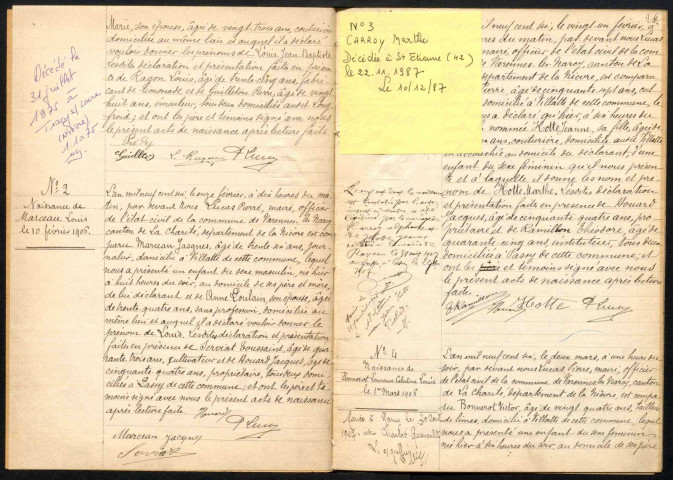 Marie, son épouse, âgée de vingt trois ans, couturière
domiciliée au même lieu et auquel il a déclaré
vouloir donner les prénoms de Louis, Jean Baptiste
Lesdits déclaration et présentation faits en présen-
ce de Ragon Louis, âgé de trente cinq ans, fabri-
cant de limonade et de Guilleton Pierre, âgé de vingt
huit ans, émailleur, tous deux domiciliés audit Long
froid; et ont les père et témoins signé avec nous
le présent acte de naissance après lecture faite.
L. Ragon
Décédé le
31 juillet
1975
Tracy s/ Loire
(Nièvre)
N° 2
Naissance de
Marceau Louis
le 10 février 1906.
L'an mil neuf cent six, le onze février, à dix heures du ma-
tin, par devant nous Lucas Pierre, maire, officier
de l'état civil de la commune de Varennes les Narcy
canton de la Charité, département de la Nièvre est com-
paru Marceau Jacques, âgé de trente six ans, jour-
nalier, domicilié à Villatte de cette commune, lequel
nous a présenté un enfant du sexe masculin, né hier
à huit heures du soir, au domicile de ses père et mère,
de lui déclarant et de Anne Poulain, son épouse, âgée
de trente quatre ans, sans profession, domiciliée au
même lieu et auquel il a déclaré vouloir donner le
prénom de Louis. Lesdits déclaration et présentation
faits en présence de Serviat Toussaint, âgé de qua-
rante trois ans, cultivateur et de Houard Jacques, âgé de
cinquante quatre ans, propriétaire, tous deux domi-
ciliés à Passy de cette commune; et ont les père et té-
moins signé avec nous le présent acte de naissance
après lecture faite.
Houard
P. Lucas
Marceau Jacques
Serviat
N° 3
CARROY Marthe
Décédée à St Etienne (42)
le 22.11.1987
Le 10/12/87
mil neuf cent six, le vingt un février, à
heures du matin, par devant nous Lucas
maire, officier de l'état civil de la com-
de Varennes les Narcy, canton de la
département de la Nièvre, est comparu
Pierre, âgé de cinquante sept ans, cul
domicilié à Villatte de cette commune, le
a déclaré qu'hier, à six heures du
nommée Hotte Jeanne, sa fille, âgée de
ans, couturière, domiciliée audit Villatte
est accouchée au domicile du déclarant, d'une
enfant du sexe féminin qu'il nous présen-
te et à laquelle il donne les nom et pré-
nom de Hotte Marthe. Lesdits déclaration
et présentation faits en présence de Houard
Jacques, âgé de cinquante quatre ans, pro-
priétaire et de Ramillon Théodore, âgé de
quarante cinq ans, instituteur, tous deux
domiciliés à Passy de cette commune; et
ont les et témoins signé avec nous
le présent acte de naissance après lecture
faite.
Ramillon Houard Hotte P. Lucas
N° 4
Naissance de
Bonnerot Laurence Célestine Louise
le 1er mars 1906.
L'an mil neuf cent six, le deux mars, à une heure du
soir, par devant nous Lucas Pierre, maire, officier
de l'état civil de la commune de Varennes les Narcy, canton
de La Charité, département de la Nièvre, est compa-
ru Bonnerot Victor, âgé de vingt quatre ans, tailleur
de limes, domicilié à Villatte de cette commune, lequel
nous a présenté une enfant du sexe féminin
née hier à dix heures du soir, au domicile de ses père